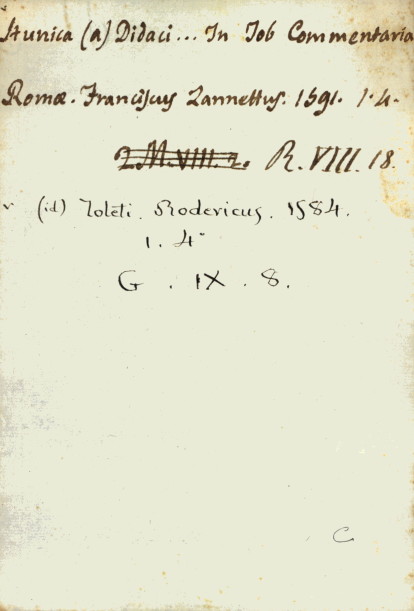 Stunica (a) Didaci... In Iob Commentaria
Romæ. Franciscus Zannettus. 1591. 1.4.
2.M.VIII.2. R.VIII.18.
v (id) Toleti. Rodericus. 1584.
1. 4°
G. IX. 8.
C